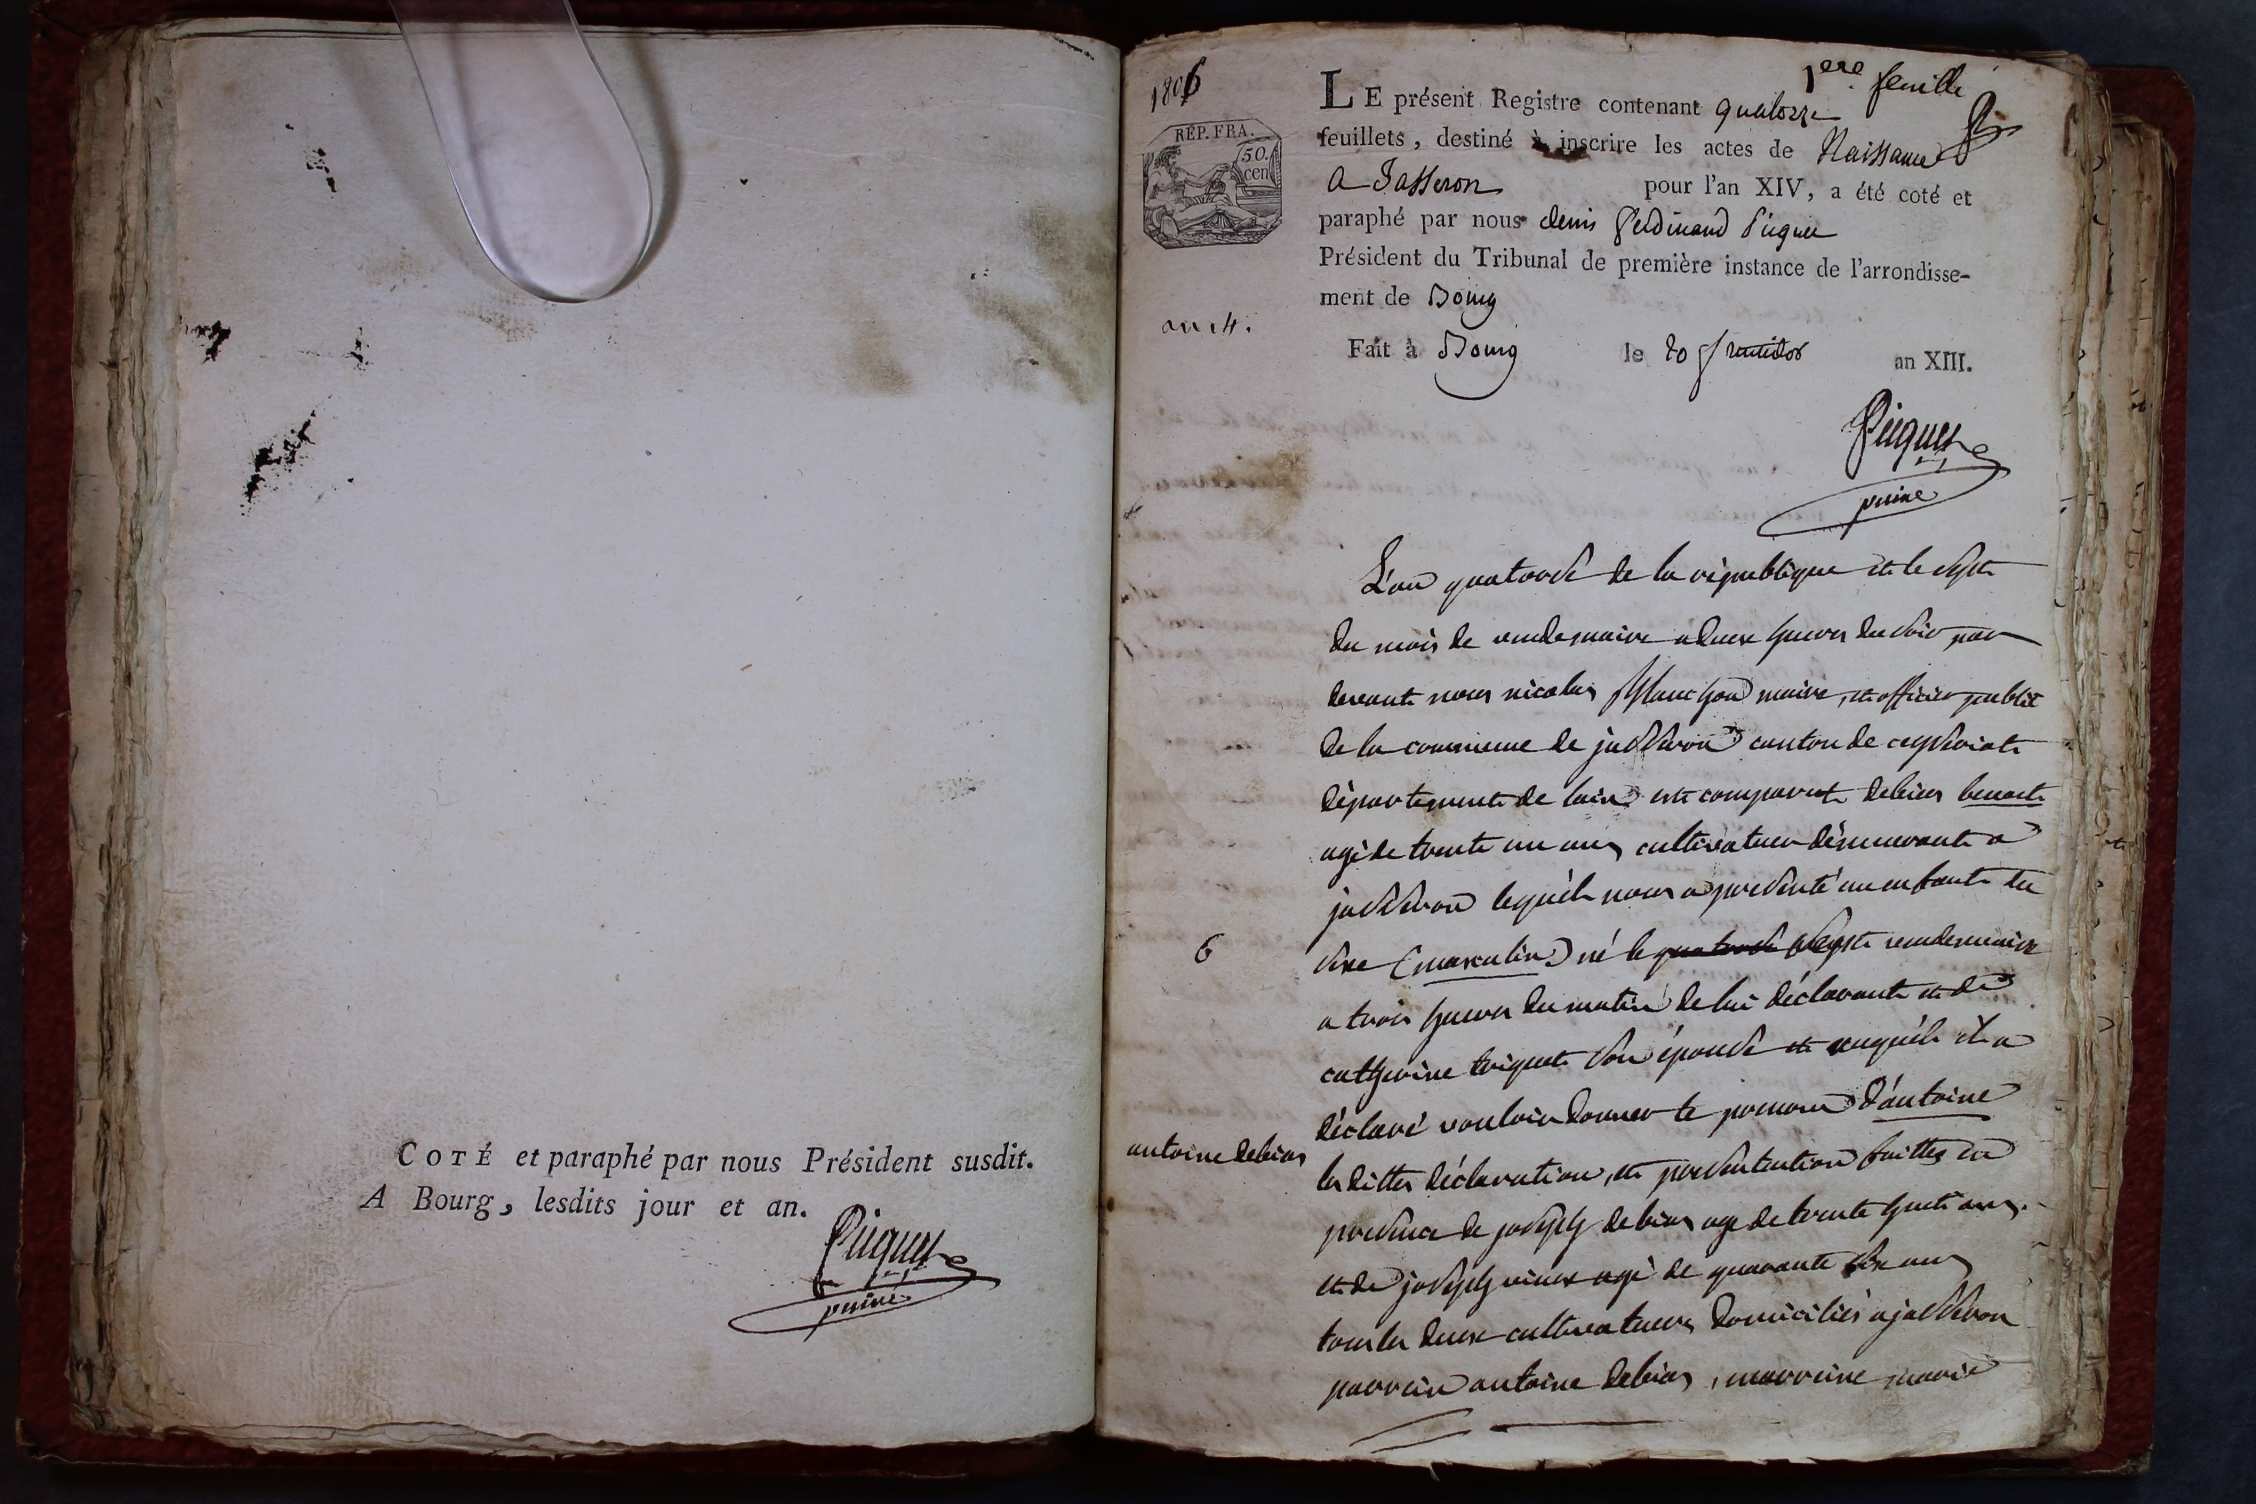 COTÉ et paraphé par nous Président susdit.
A Bourg, lesdits jour et an.
Picquet
puiné
1806
1ere. feuille
RÉP. FRA.
50.
cen
LE présent Registre contenant quatorze
feuillets, destiné à inscrire les actes de Naissance
a Jasseron pour l'an XIV, a été coté et
paraphé par nous denis ferdinand Picquet
Président du Tribunal de première instance de l'arrondisse-
ment de Bourg
an 14.
Fait à Bourg le 20 fructidor an XIII.
Picquet
puiné
L'an quatorse de la république et le sept
du mois de vendemaire a deux heures du soir par
devant nous nicolas planchon maire, et officier public
de la commune de jasseron canton de ceyseriat
département de lain est comparut debias benoit
agé de trente un ans cultivateur démeurant a
jasseron lequel nous a presenté un enfant du
6
sexe (masculin) né le quatorse sept vendemaire
a trois heures du matin de lui déclarant et de
catherine triquet son épouse et auquél il a
déclaré vouloir donner le prenom d'antoine
antoine debias
les dittes déclaration, et presentation faittes en
presence de joseph debias age de trente huit ans.
et de joseph vieux agé de quarante six ans
tous les deux cultivateurs domiciliés a jasseron
parrain antoine debias, marreine marie